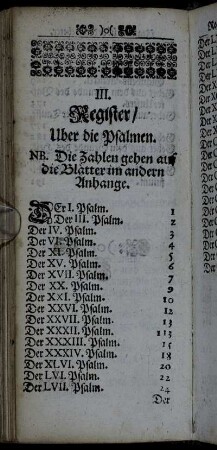 )o(
III.
Register/
Uber die Psalmen.
NB. Die Zahlen gehen auf
die Blätter im andern
Anhange.
DEr I. Psalm. 1
Der III. Psalm. 2
Der IV. Psalm. 3
Der VI. Psalm. 4
Der XI. Psalm. 5
Der XV. Psalm. 6
Der XVII. Psalm. 7
Der XX. Psalm. 9
Der XXI. Psalm. 10
Der XXVI. Psalm. 12
Der XXVII. Psalm. 13
Der XXXII. Psalm. 113
Der XXXIII. Psalm. 15
Der XXXIV. Psalm. 18
Der XLVI. Psalm. 20
Der LVI. Psalm. 22
Der LVII. Psalm. 24
Der